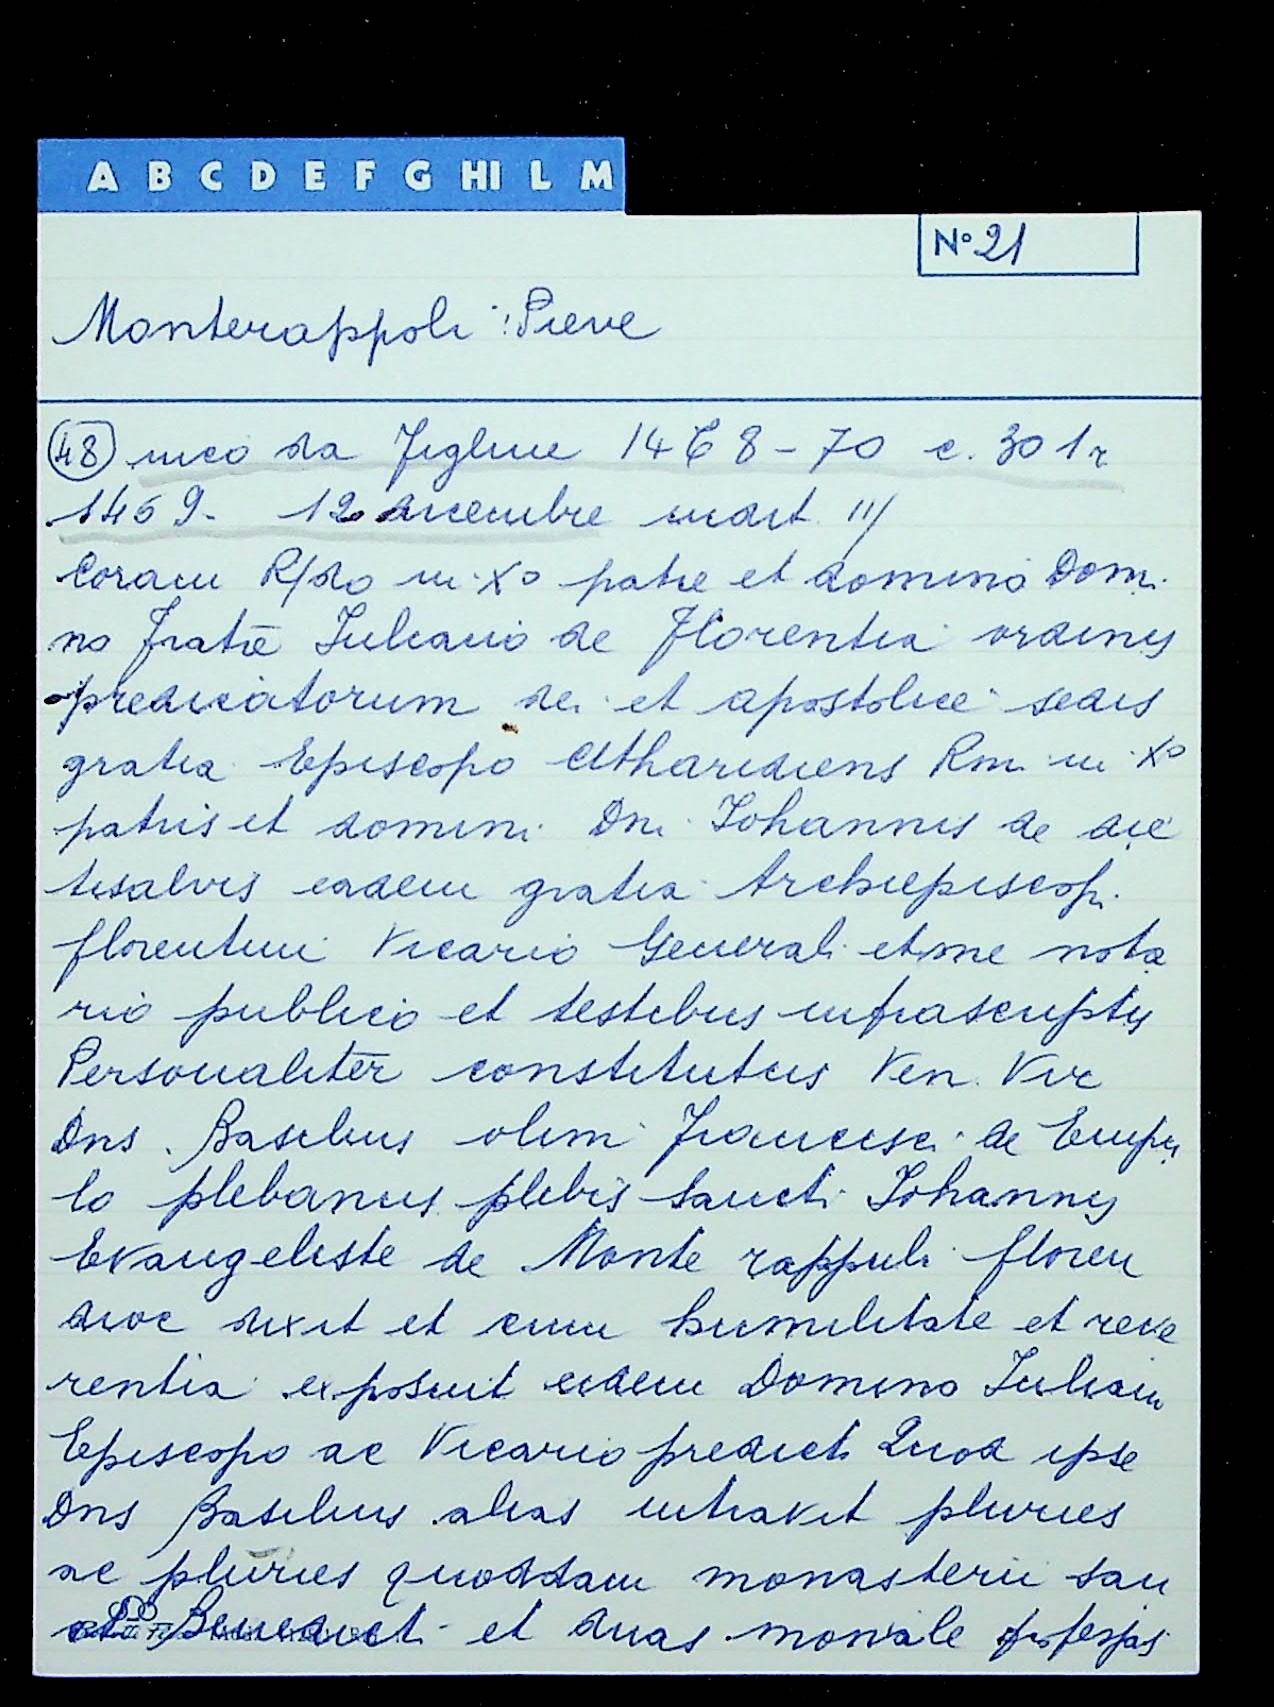 A B C D E F G HI L M
N° 21
Monterappoli : Pieve
48 meo da Figline 1468-70 c. 301r
1469. 12 dicembre indit. III
Coram R/do in Xo patre et domino Domi
no fratre Iuliano de Florentia ordinis
predicatorum dei et apostolice sedis
gratia Episcopo Rmi in Xo
patris et domini Dni Iohannis de die
tisalvis eadem gratia Archiepiscopi
florentini Vicario Generali et me nota
rio publico et testibus infrascriptis
Personaliter constitutus Ven. Vir
Dns Basilius olim Francisci de Empu
lo plebanus plebis Sancti Iohannis
Evangeliste de Monte rappuli floren
dioc dixit et cum humilitate et reve
rentia exposuit eidem Domino Iulian
Episcopo ac Vicario predicti Quod ipse
Dns Basilius alias intravit pluries
ac pluries quoddam monasterii san
cti Benedicti et duas moniale professas